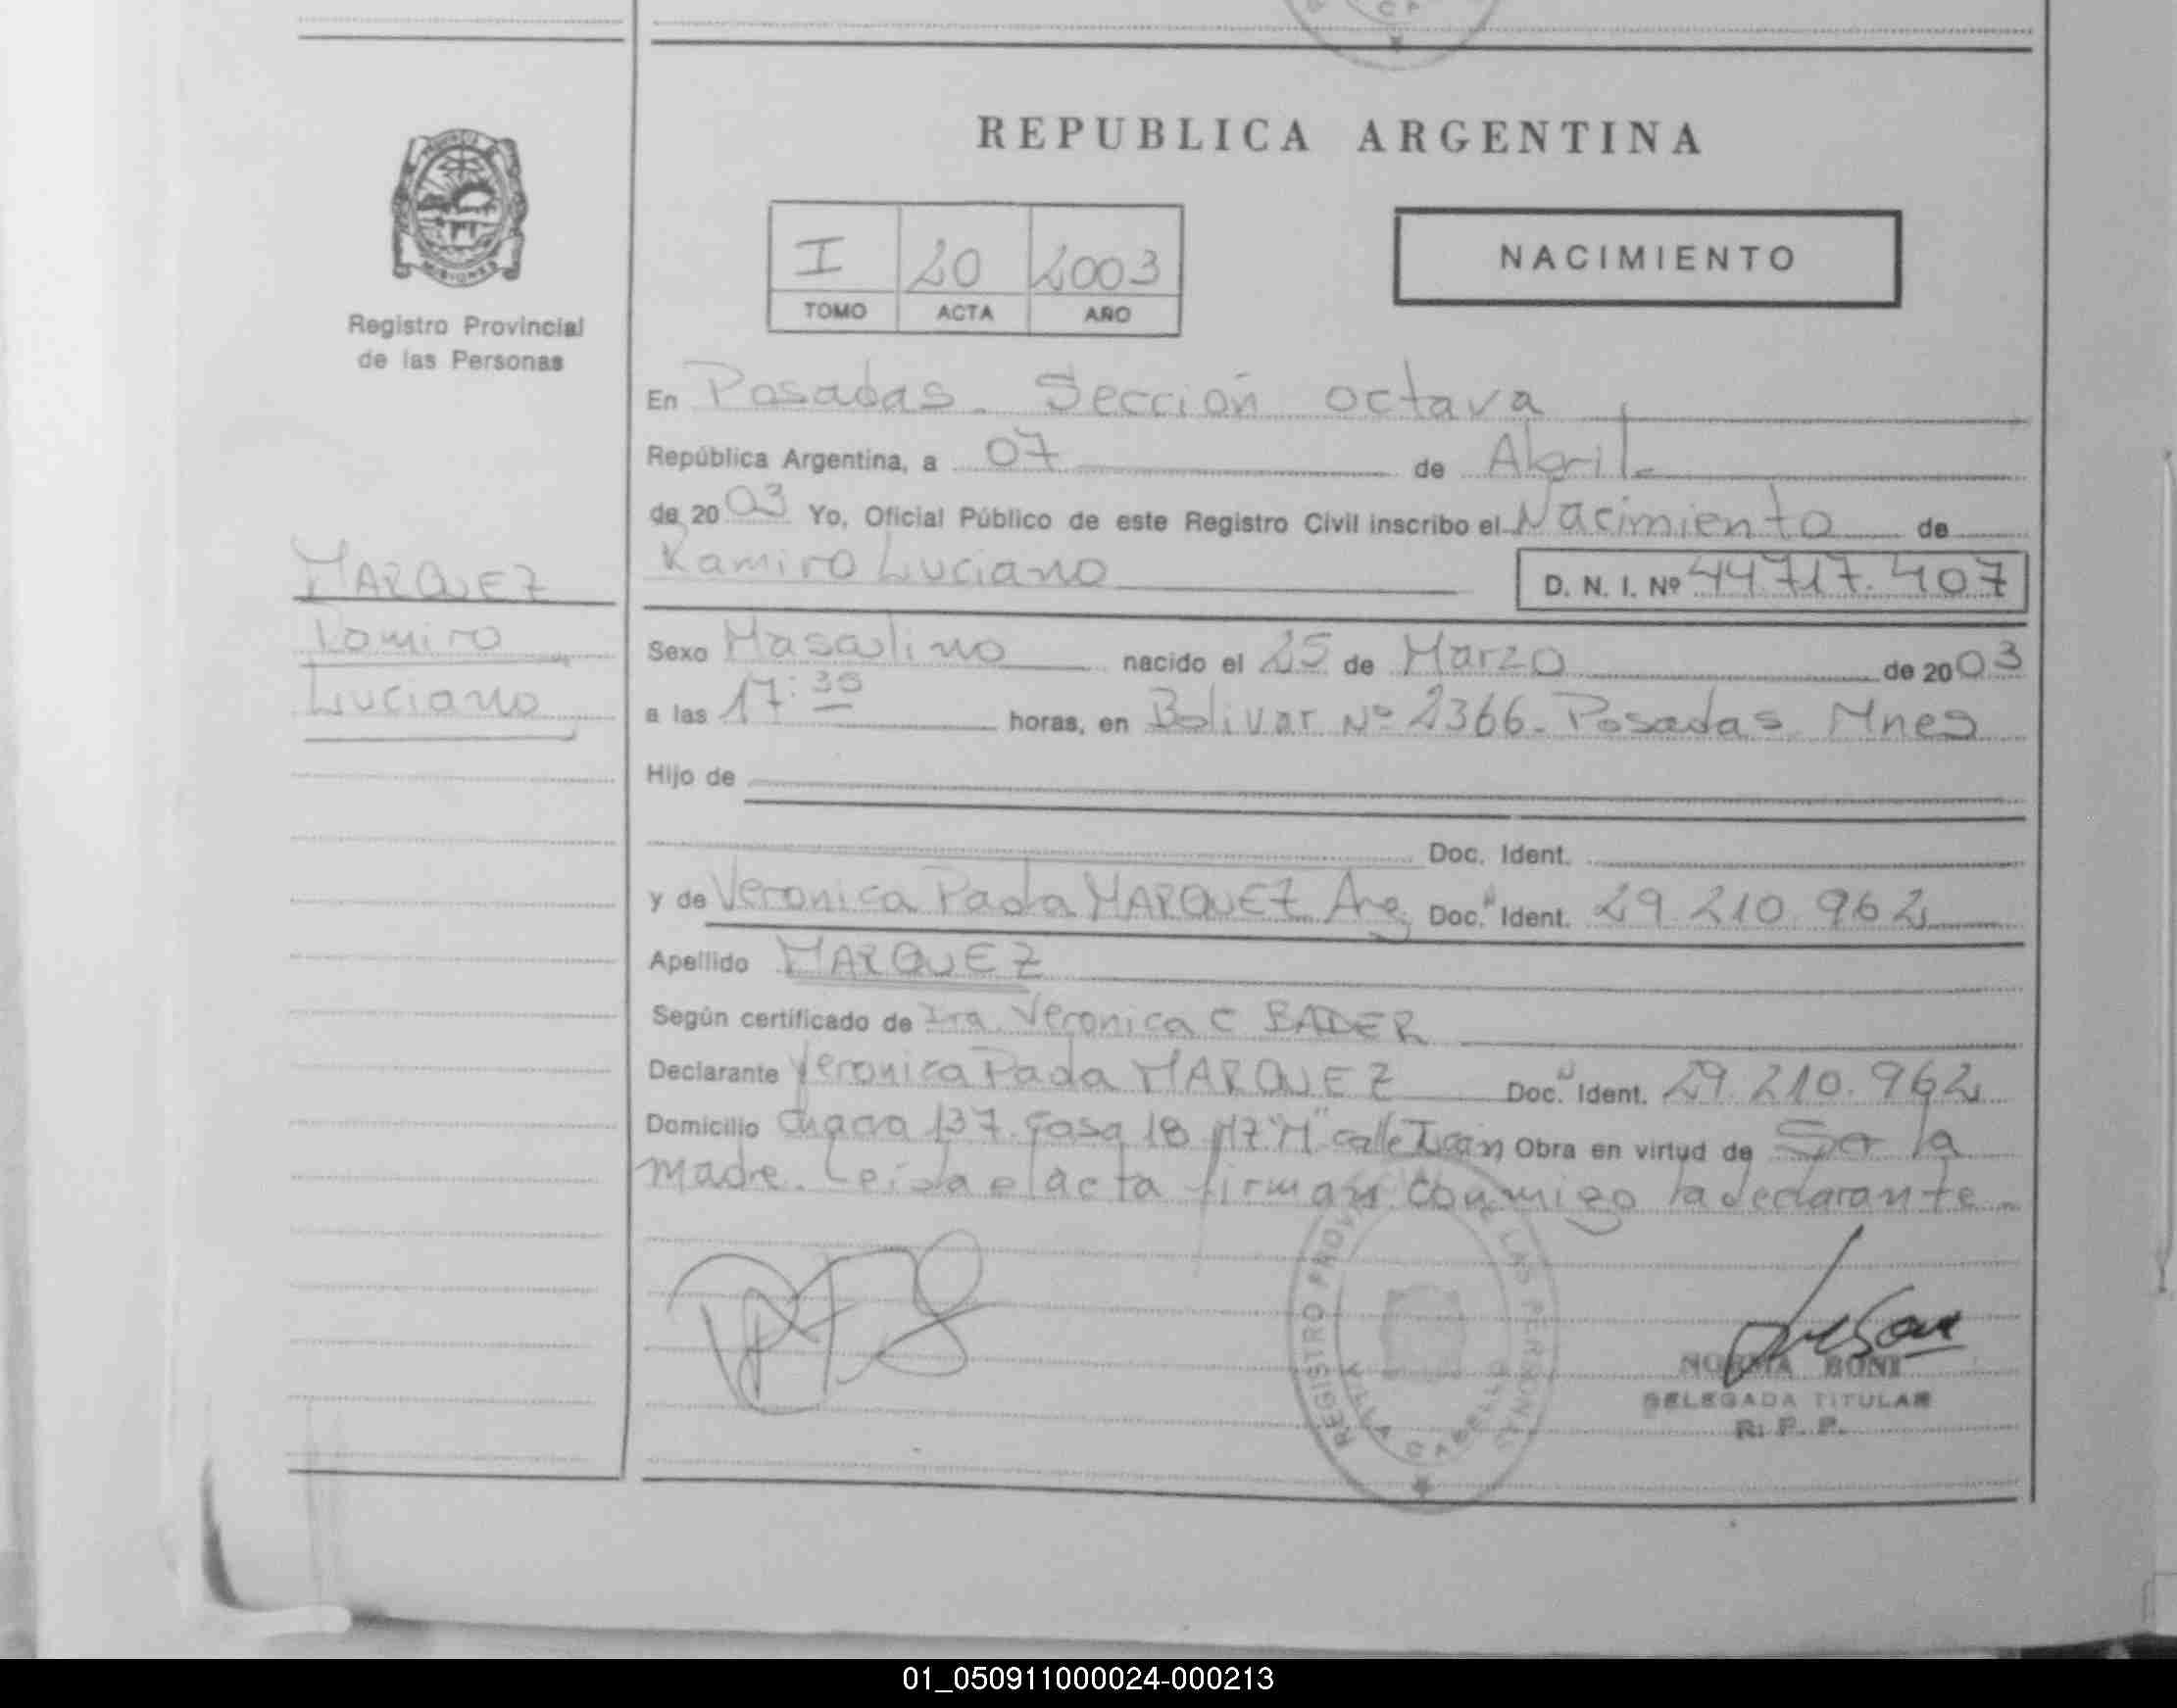 REPUBLICA ARGENTINA
I 20 2003
TOMO ACTA AÑO
NACIMIENTO
MISIONES
Registro Provincial
de las Personas
MARQUEZ
Ramiro
Luciano
En Posadas. Sección octava
República Argentina, a 07 de Abril
de 2003 Yo, Oficial Público de este Registro Civil inscribo el Nacimiento de
Ramiro Luciano D. N. I. Nº 44.717.407
Sexo Masculino nacido el 25 de Marzo de 2003
a las 17:30 horas, en Bolivar Nº 2366. Posadas. Mnes
Hijo de
Doc. Ident.
y de Veronica Paola MARQUEZ Arg. Doc. Ident. 29.210.962
Apellido MARQUEZ
Según certificado de Veronica C BADER
Declarante Veronica Paola MARQUEZ Doc. Ident. 29.210.962
Domicilio Chacra 137 Casa 18 MZ "M" calle Obra en virtud de Ser la
madre. Leida el acta firman conmigo la declarante
REGISTRO PROVINCIAL DE LAS PERSONAS
VILLA CABELLO
NORMA BONI
DELEGADA TITULAR
R. P. P.
01_050911000024-000213